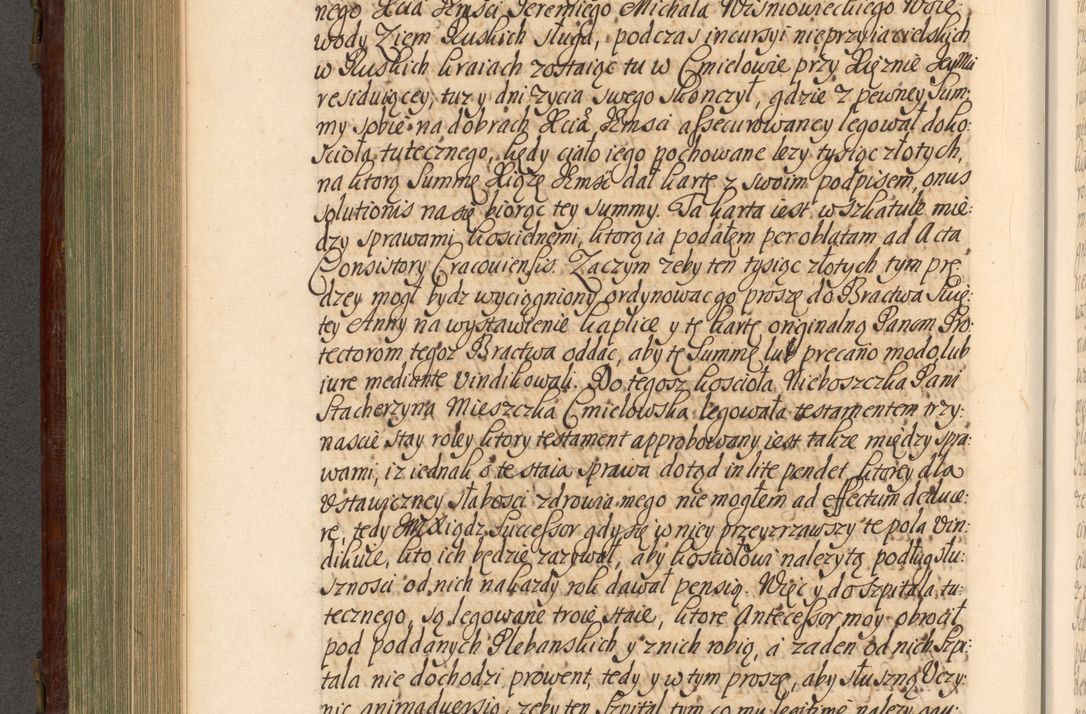 nego Xcia Jmsci Jeremiego Michala Wisniowieckiego Woie:
wody Ziem Ruskich sługa, podczas incursyi nieprzyiacielskich
w Ruskich kraiach zostaiąc tu w Cmielowie przy Xięznie Jey Mci
residuiącey, tuz y dni zycia swego skonczył, gdzie z pewney Sum:
my sobie na dobrach Xcia Jmsci assecurowaney legował do ko:
scioła tutecznego, kędy ciało iego pochowane lezy tysiąc złotych,
na ktorą Summę Xiążę Jmsc dał kartę z swoim podpisem, onus
solutionis na się biorąc tey summy. Ta karta iest w szkatule mie:
dzy sprawami koscielnemi, ktorą ia podałem per oblatam ad Acta
Consistory Cracoviensis. Zaczym zeby ten tysiąc złotych tym prę:
dzey mogł bydz wyciągniony, ordynowac go proszę do Bractwa Swię:
tey Anny na wystawienie kaplice y tę kartę originalną Panom Pro:
tectorom tegoz Bractwa oddac, aby tę Summę lub precario modo, lub
iure mediante vindikowali. Do tegosz koscioła Nieboszczka Pani
Stacherzyna Mieszczka Cmielowska legowała testamentem trzy:
nascie stay roley ktory testament approbowany iest takze między spra:
wami, iz iednak o te staia sprawa dotąd in lite pendet, ktorey dla
Ustawiczney słabosci zdrowia mego nie mogłem ad effectum deduce:
re, tedy Xiądz Successor gdy się w niey przeyzrzawszy te pola vin:
dikuie, kto ich będzie zazywał, aby kosciołowi nalezytą podług słu:
sznosci od nich na kazdy rok dawał pensią. Więc y do szpitala tu:
tecznego, są legowane troie staie, ktore Antecessor moy obrocił
pod poddanych Plebanskich y z nich robią, a zaden od nich Szpi:
tala nie dochodzi prowent, tedy y w tym proszę, aby słuszną Uczy:
nic animadversią, zeby ten Szpital tym co mu legitime nalezy gau: